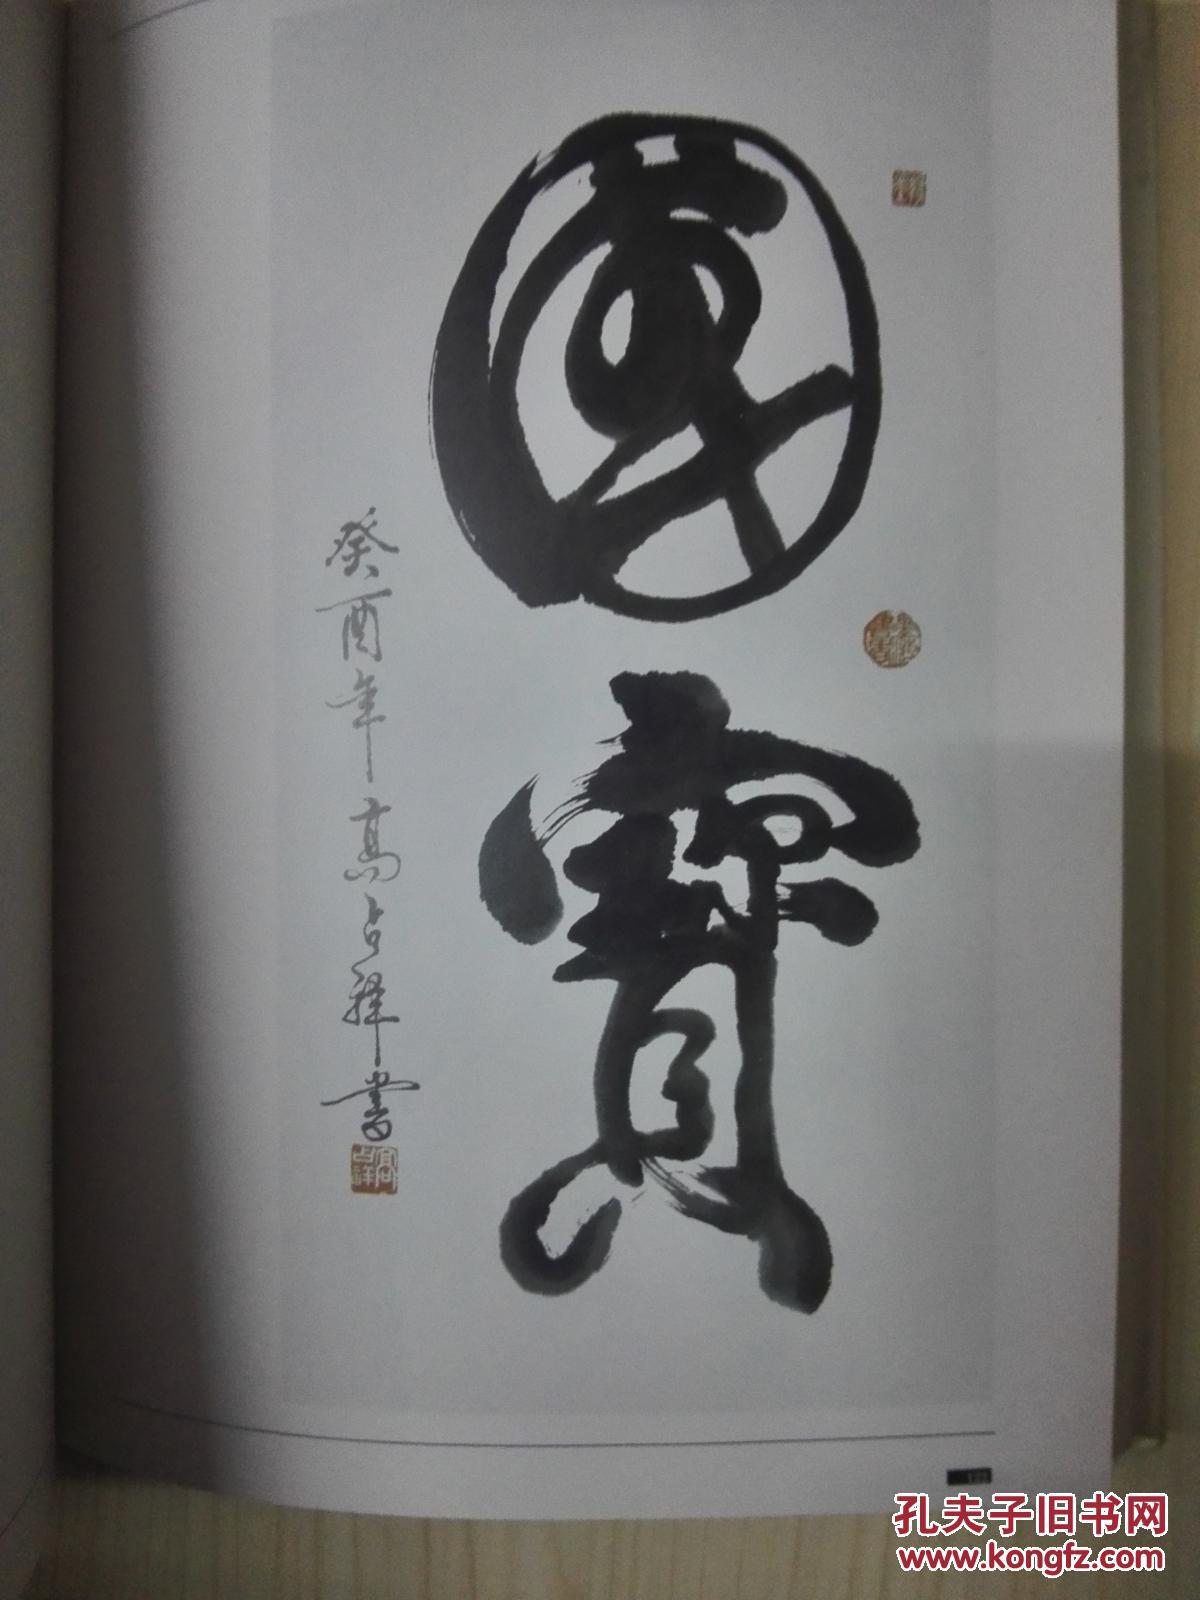 國寶
癸酉年高占祥書
高占祥
孔夫子旧书网
www.kongfz.com